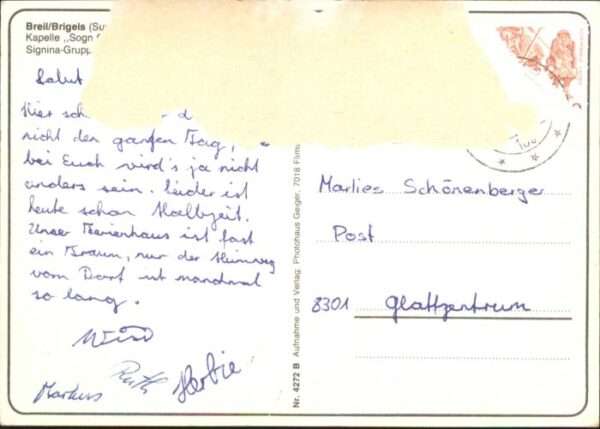 Breil/Brigels (Su
Kapelle „Sogn
Signina-Grupp
Salut
Hier sch
nicht den ganzen Tag,
bei Euch wird's ja nicht
anders sein. Leider ist
heute schon Halbzeit.
Unser Ferienhaus ist fast
ein Traum, nur der Heimweg
vom Dorf ist manchmal
so lang.
Ruth Herbie
Markus
Nr. 4272 B Aufnahme und Verlag: Photohaus Geiger, 7018 Flims
Marlies Schönenberger
Post
8301 Glattzentrum